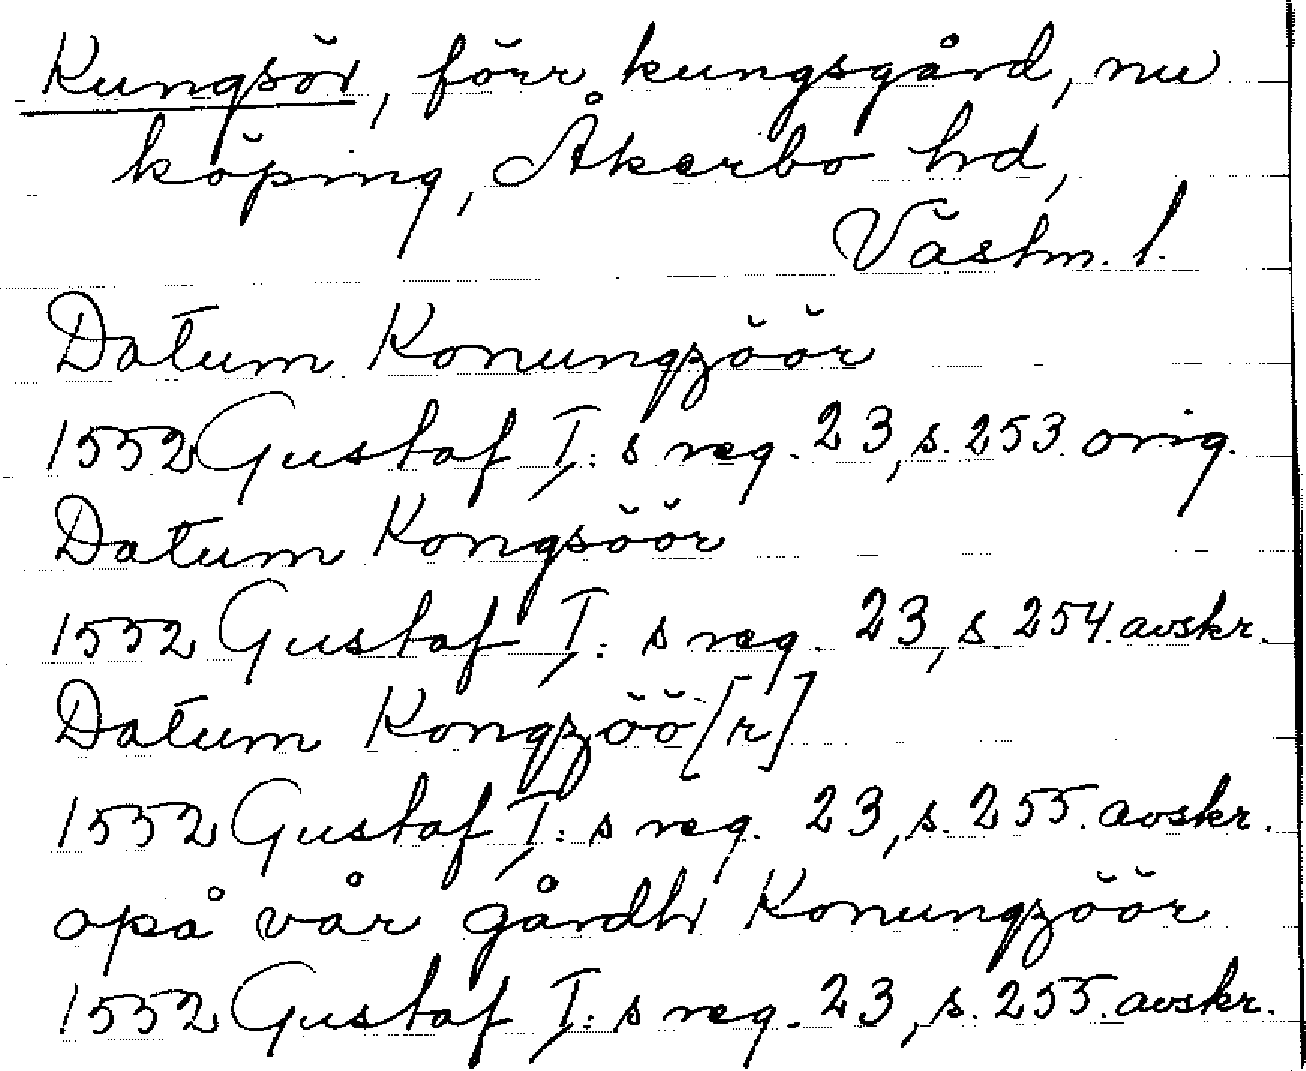 Kungsör, förr kungsgård, nu
köping, Åkerbo hd,
Västm. l.
Datum Konungzöör
1552 Gustaf I:s reg. 23, s. 253. orig.
Datum Kongsöör
1552 Gustaf I:s reg. 23, s. 254. avskr.
Datum Kongzöö[r]
1552 Gustaf I:s reg. 23, s. 255. avskr.
opå vår gårdh Konungzöör
1552 Gustaf I:s reg. 23, s. 255. avskr.